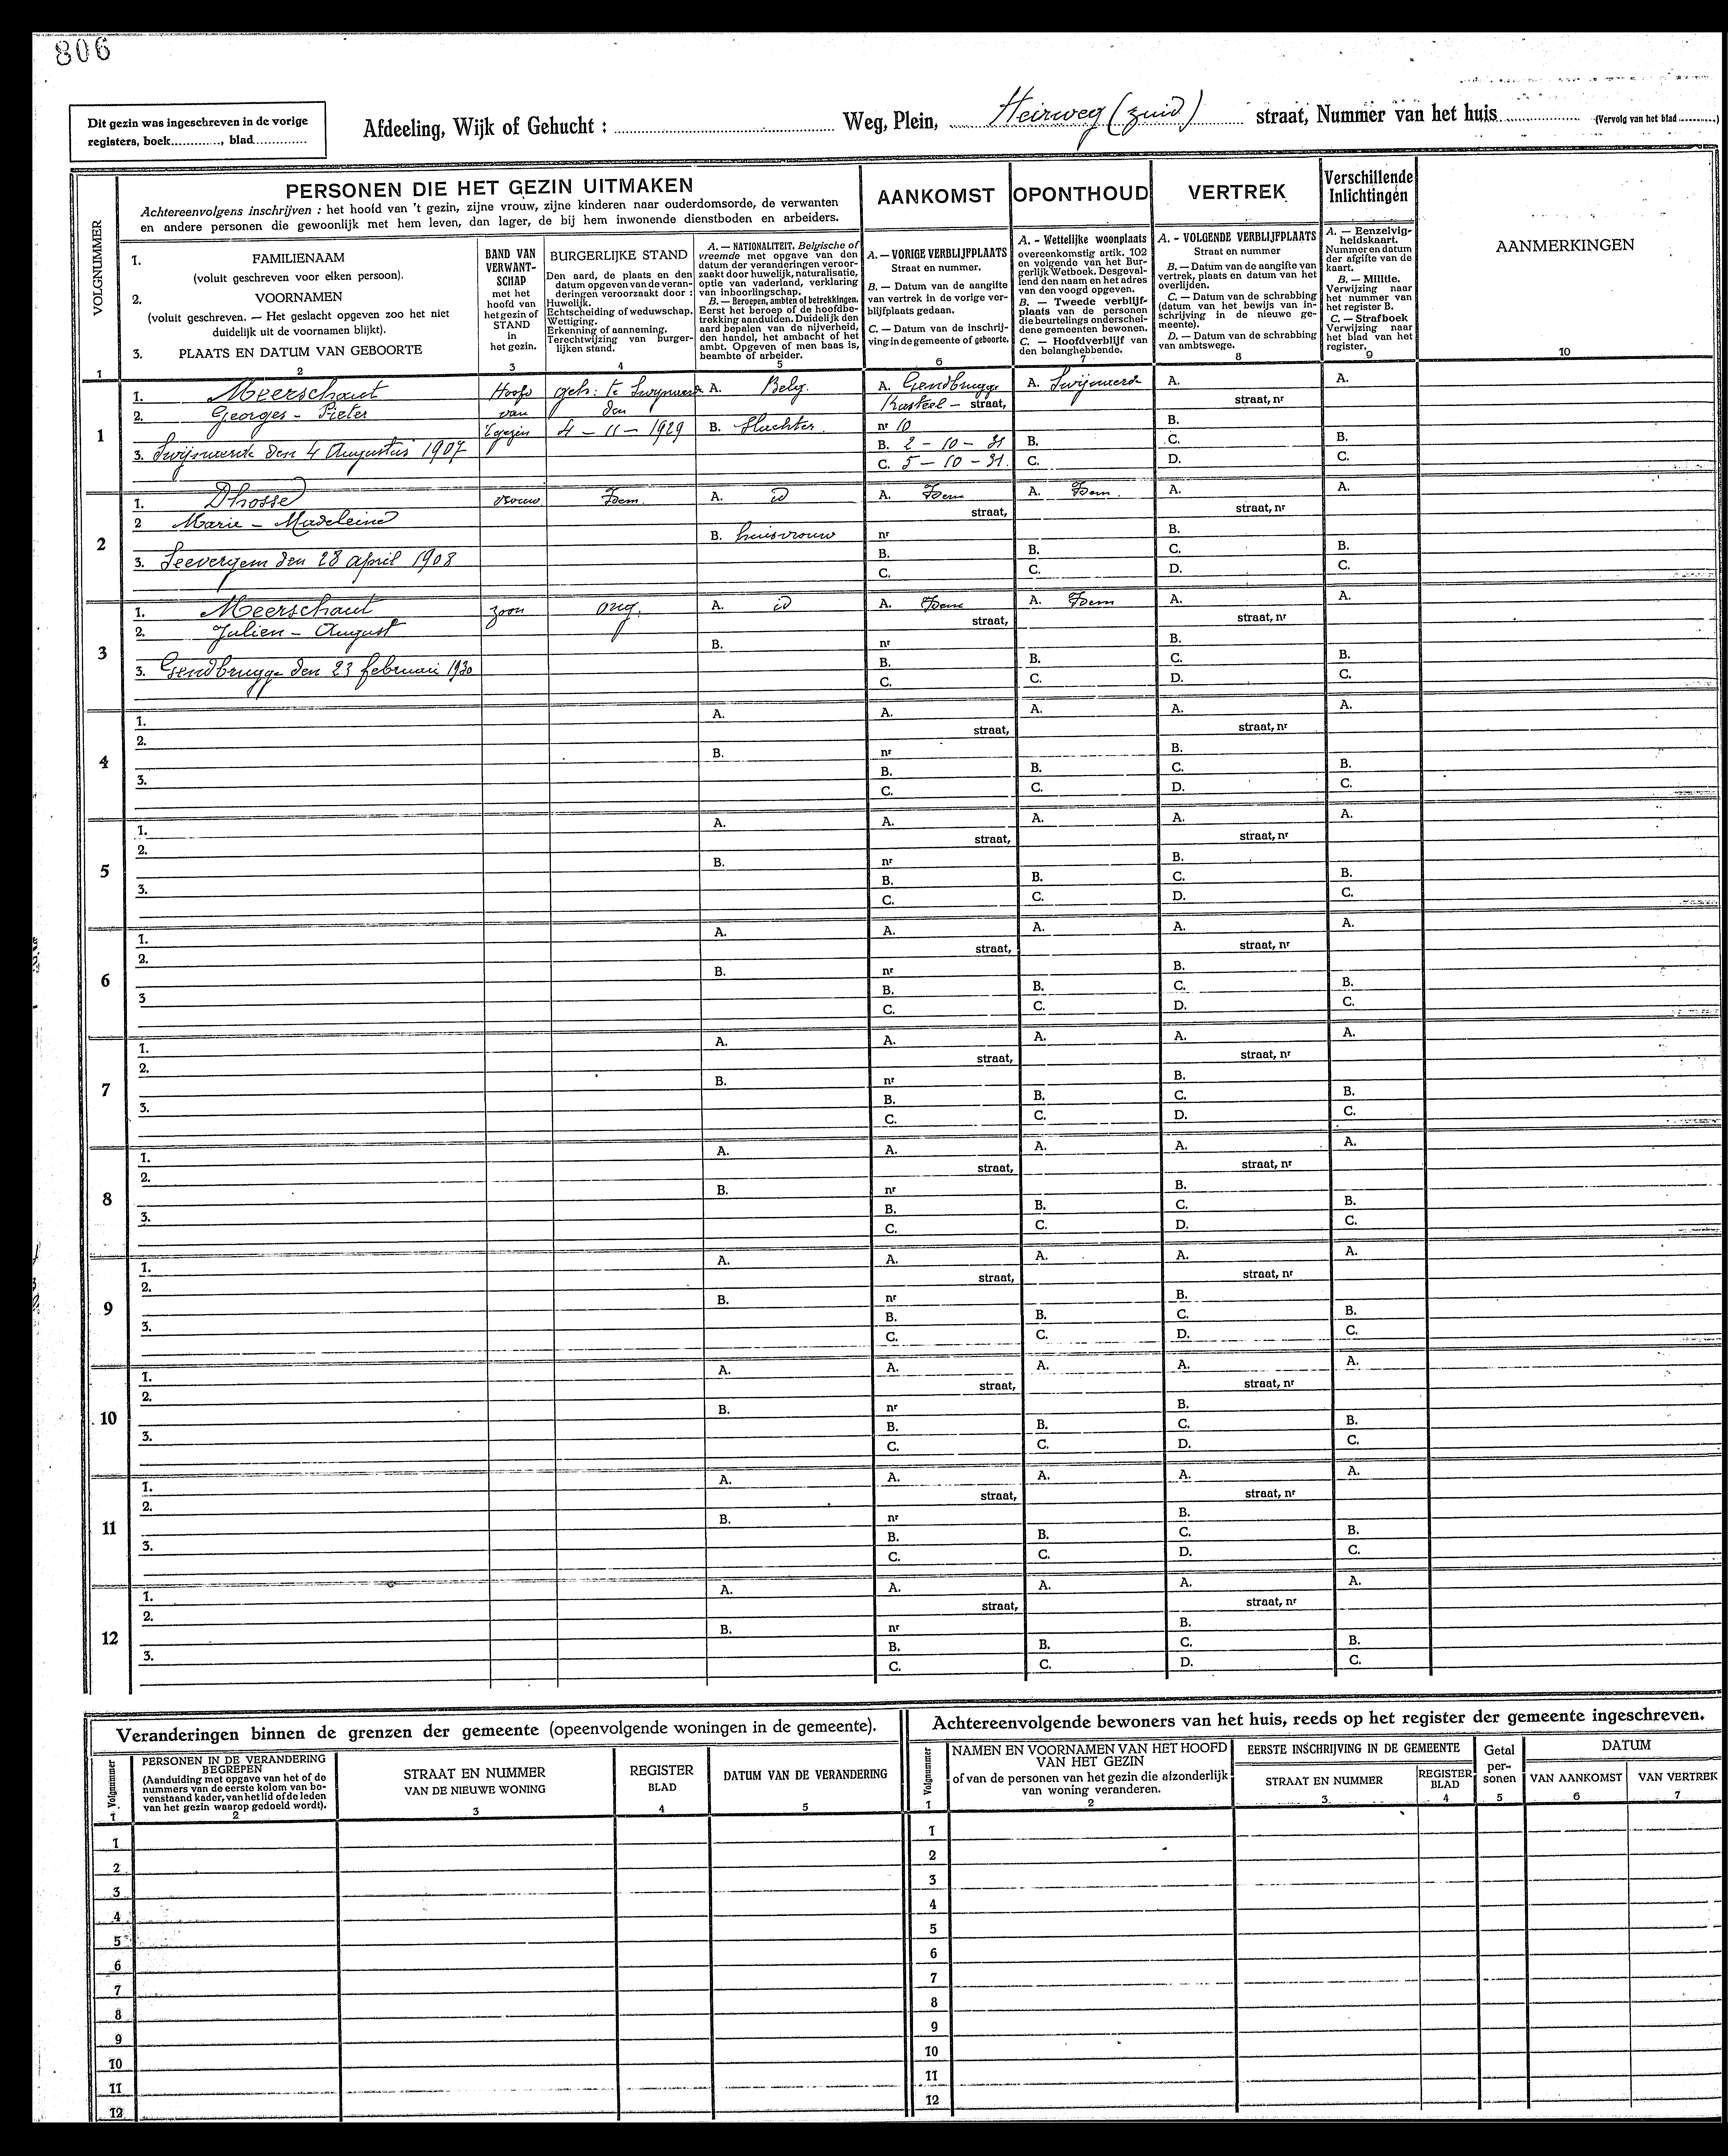 806
Dit gezin was ingeschreven in de vorige
registers, boek............, blad............
Afdeeling, Wijk of Gehucht : ............ Weg, Plein, Heirweg (zuid) straat, Nummer van het huis............ (Vervolg van het blad............)
VOLGNUMMER
PERSONEN DIE HET GEZIN UITMAKEN
Achtereenvolgens inschrijven : het hoofd van 't gezin, zijne vrouw, zijne kinderen naar ouderdomsorde, de verwanten
en andere personen die gewoonlijk met hem leven, dan lager, de bij hem inwonende dienstboden en arbeiders.
AANKOMST
OPONTHOUD
VERTREK
Verschillende
Inlichtingen
AANMERKINGEN
1. FAMILIENAAM
(voluit geschreven voor elken persoon).
2. VOORNAMEN
(voluit geschreven. — Het geslacht opgeven zoo het niet
duidelijk uit de voornamen blijkt).
3. PLAATS EN DATUM VAN GEBOORTE
BAND VAN
VERWANT-
SCHAP
met het
hoofd van
het gezin of
STAND
in
het gezin.
BURGERLIJKE STAND
Den aard, de plaats en den
datum opgeven van de veran-
deringen veroorzaakt door :
Huwelijk.
Echtscheiding of weduwschap.
Wettiging.
Erkenning of aanneming.
Terechtwijzing van burger-
lijken stand.
A. — NATIONALITEIT. Belgische of
vreemde met opgave van den
datum der veranderingen veroor-
zaakt door huwelijk, naturalisatie,
optie van vaderland, verklaring
van inboorlingschap.
B. — Beroepen, ambten of betrekkingen.
Eerst het beroep of de hoofdbe-
trekking aanduiden. Duidelijk den
aard bepalen van de nijverheid,
den handel, het ambacht of het
ambt. Opgeven of men baas is,
beambte of arbeider.
A. — VORIGE VERBLIJFPLAATS
Straat en nummer.
B. — Datum van de aangifte
van vertrek in de vorige ver-
blijfplaats gedaan.
C. — Datum van de inschrij-
ving in de gemeente of geboorte.
A. - Wettelijke woonplaats
overeenkomstig artik. 102
en volgende van het Bur-
gerlijk Wetboek. Desgeval-
lend den naam en het adres
van den voogd opgeven.
B. — Tweede verblijf-
plaats van de personen
die beurtelings onderschei-
dene gemeenten bewonen.
C. — Hoofdverblijf van
den belanghebbende.
A. - VOLGENDE VERBLIJFPLAATS
Straat en nummer
B. — Datum van de aangifte van
vertrek, plaats en datum van het
overlijden.
C. — Datum van de schrabbing
(datum van het bewijs van in-
schrijving in de nieuwe ge-
meente).
D. — Datum van de schrabbing
van ambtswege.
A. — Eenzelvig-
heidskaart.
Nummer en datum
der afgifte van de
kaart.
B. — Militie.
Verwijzing naar
het nummer van
het register B.
C. — Strafboek
Verwijzing naar
het blad van het
register.
1 2 3 4 5 6 7 8 9 10
1
1. Meerschaut Hoofd geh: te Swijnaerde A. Belg. A. Gendbrugge A. Swijnaerde A. A.
2. Georges - Pieter van den Kasteel - straat, straat, nr
't gezin 4 - 11 - 1929 B. Slachter nr 10 B.
3. Swijnaerde den 4 Augustus 1907 B. 2 - 10 - 31 B. C. B.
C. 5 - 10 - 31. C. D. C.
2
1. Dhosse vrouw Idem A. id A. Idem A. Idem A. A.
2 Marie - Madeleine straat, straat, nr
B. huisvrouw nr B.
3. Seevergem den 28 april 1908 B. B. C. B.
C. C. D. C.
3
1. Meerschaut zoon ong. A. id A. Idem A. Idem A. A.
2. Julien - August straat, straat, nr
B. nr B.
3. Gendbrugge den 23 februari 1930 B. B. C. B.
C. C. D. C.
4
1. A. A. A. A. A.
2. straat, straat, nr
B. nr B.
3. B. B. C. B.
C. C. D. C.
5
1. A. A. A. A. A.
2. straat, straat, nr
B. nr B.
3. B. B. C. B.
C. C. D. C.
6
1. A. A. A. A. A.
2. straat, straat, nr
B. nr B.
3 B. B. C. B.
C. C. D. C.
7
1. A. A. A. A. A.
2. straat, straat, nr
B. nr B.
3. B. B. C. B.
C. C. D. C.
8
1. A. A. A. A. A.
2. straat, straat, nr
B. nr B.
3. B. B. C. B.
C. C. D. C.
9
1. A. A. A. A. A.
2. straat, straat, nr
B. nr B.
3. B. B. C. B.
C. C. D. C.
10
1. A. A. A. A. A.
2. straat, straat, nr
B. nr B.
3. B. B. C. B.
C. C. D. C.
11
1. A. A. A. A. A.
2. straat, straat, nr
B. nr B.
3. B. B. C. B.
C. C. D. C.
12
1. A. A. A. A. A.
2. straat, straat, nr
B. nr B.
3. B. B. C. B.
C. C. D. C.
Veranderingen binnen de grenzen der gemeente (opeenvolgende woningen in de gemeente).
Volgnummer
PERSONEN IN DE VERANDERING
BEGREPEN
(Aanduiding met opgave van het of de
nummers van de eerste kolom van bo-
venstaand kader, van het lid of de leden
van het gezin waarop gedoeld wordt).
STRAAT EN NUMMER
VAN DE NIEUWE WONING
REGISTER
BLAD
DATUM VAN DE VERANDERING
1 2 3 4 5
1
2
3
4
5
6
7
8
9
10
11
12
Achtereenvolgende bewoners van het huis, reeds op het register der gemeente ingeschreven.
Volgnummer
NAMEN EN VOORNAMEN VAN HET HOOFD
VAN HET GEZIN
of van de personen van het gezin die afzonderlijk
van woning veranderen.
EERSTE INSCHRIJVING IN DE GEMEENTE
STRAAT EN NUMMER
REGISTER
BLAD
Getal
per-
sonen
DATUM
VAN AANKOMST
VAN VERTREK
1 2 3 4 5 6 7
1
2
3
4
5
6
7
8
9
10
11
12